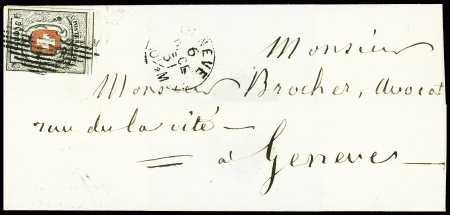 GENÈVE
Monsieur
Monsieur Brocher, Avocat
rue de la cité —
à Geneve —